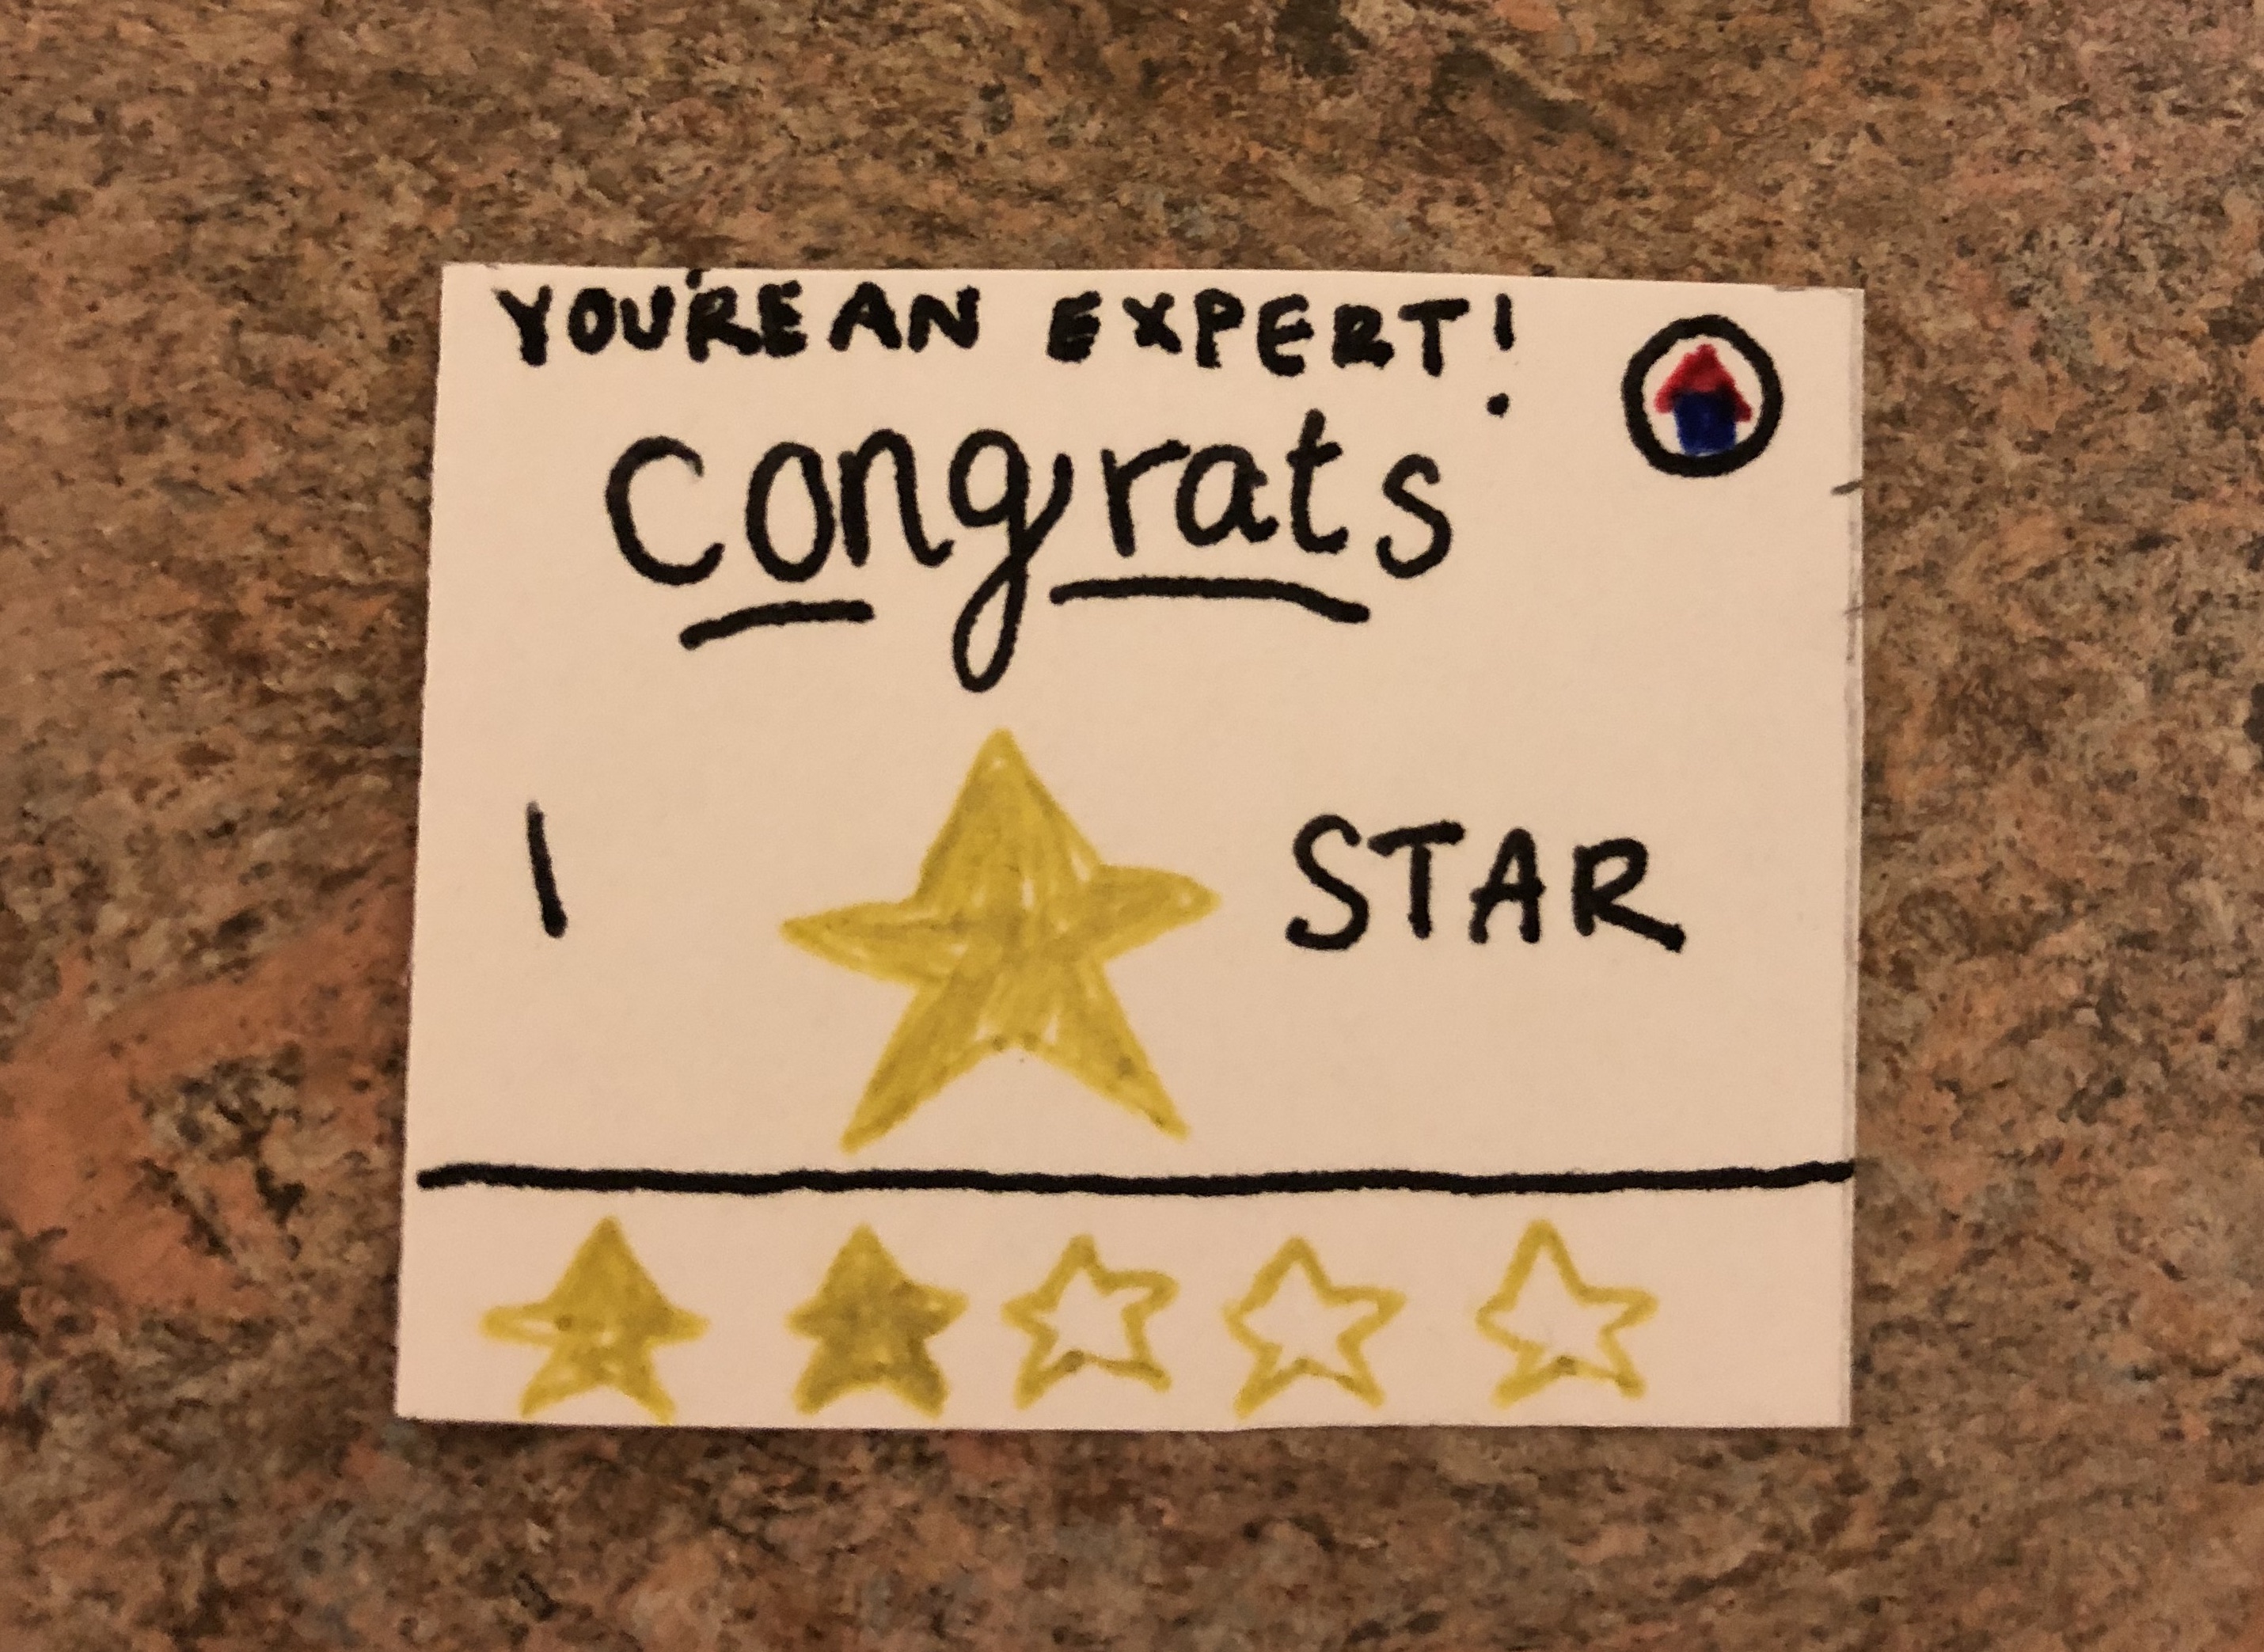 YOU'RE AN EXPERT!
congrats
1 STAR